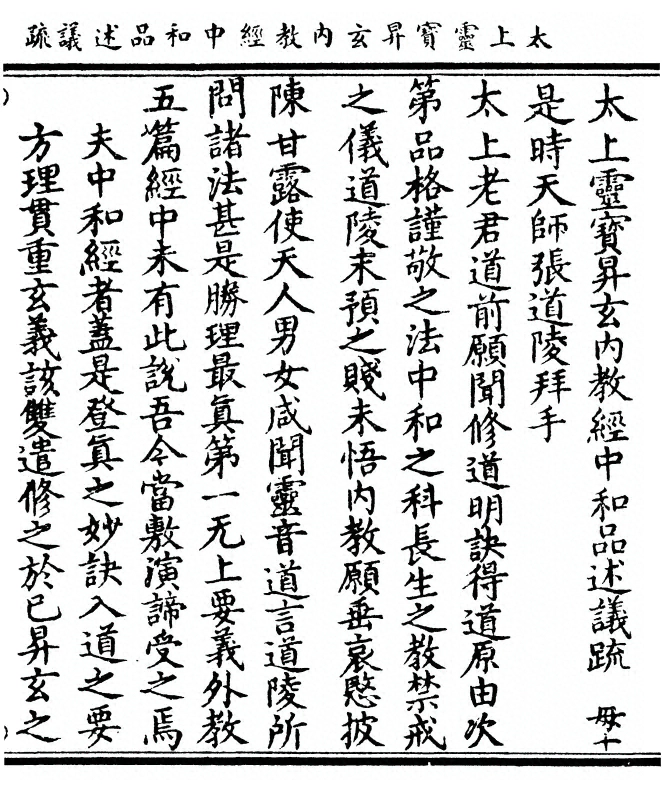 太上靈寶昇玄内教經中和品述議疏
太上靈寶昇玄内教經中和品述議疏 母十
是時天師張道陵拜手
太上老君道前願聞修道明訣得道原由次
第品格謹敬之法中和之科長生之教禁戒
之儀道陵末預之賤未悟内教願垂哀愍披
陳甘露使天人男女咸聞靈音道言道陵所
問諸法甚是勝理最眞第一无上要義外教
五篇經中未有此說吾今當敷演諦受之焉
夫中和經者蓋是登眞之妙訣入道之要
方理貫重玄義該雙遣修之於已昇玄之